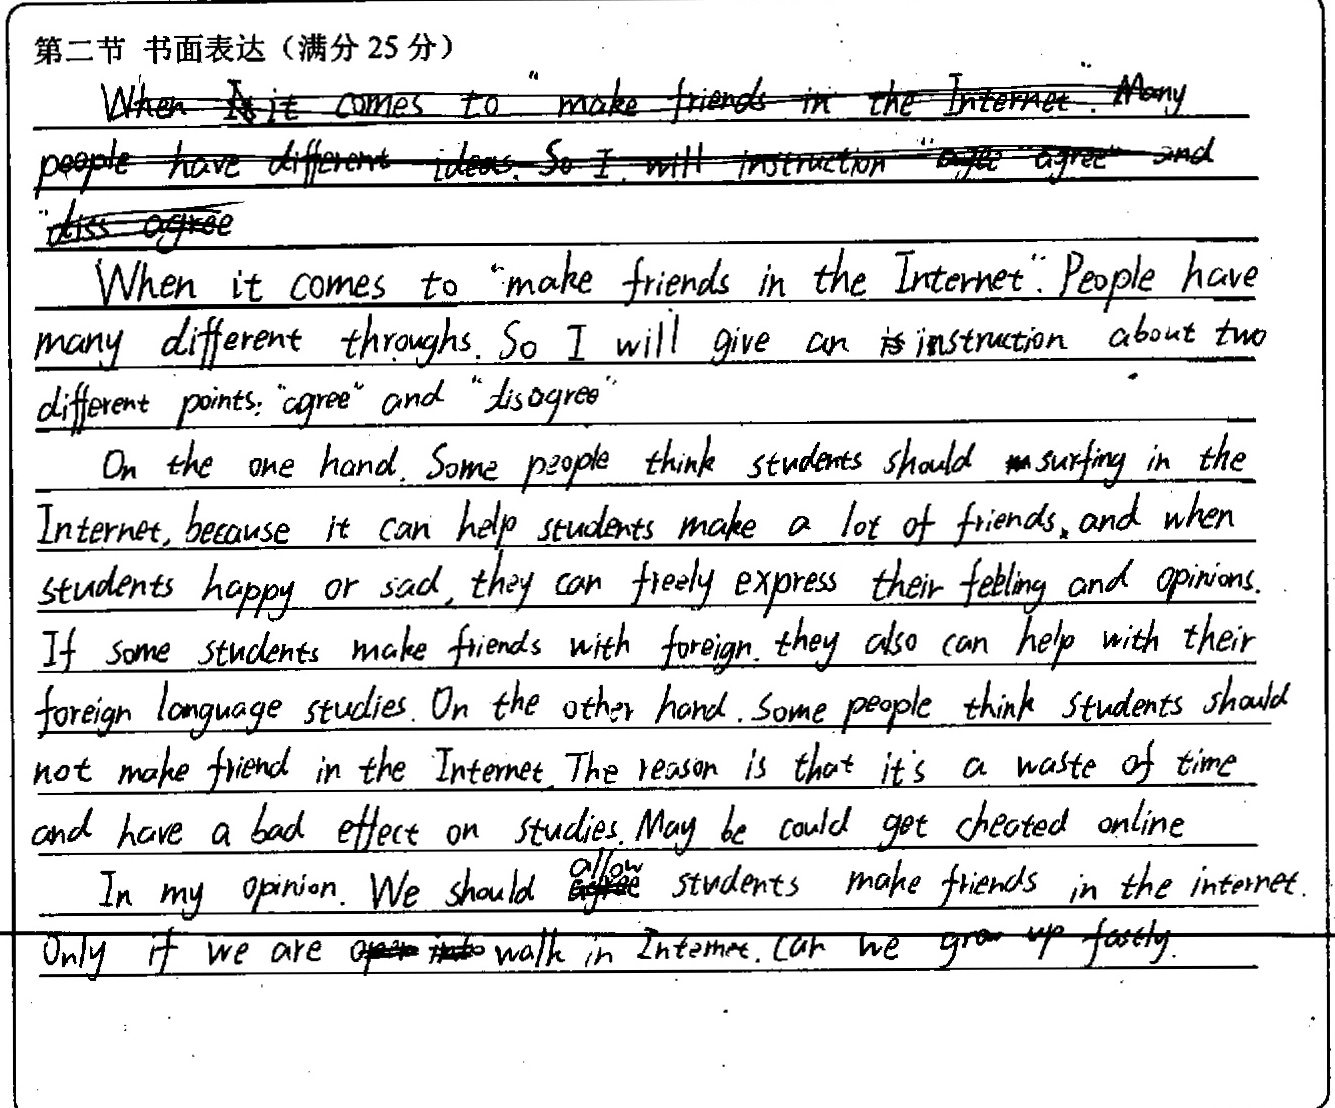 第二节 书面表达（满分 25 分）
When it comes to "make friends in the Internet". Many
people have different ideas. So I will instruction "agee" "agree" and
"diss agree
When it comes to "make friends in the Internet". People have
many different throughs. So I will give an is instruction about two
different points: "agree" and "disagree"
On the one hand. Some people think students should surfing in the
Internet, because it can help students make a lot of friends, and when
students happy or sad, they can freely express their feeling and opinions.
If some students make friends with foreign. they also can help with their
foreign language studies. On the other hand. Some people think students should
not make friend in the Internet. The reason is that it's a waste of time
and have a bad effect on studies. May be could get cheated online
allow
In my opinion. We should agree students make friends in the internet.
Only if we are open into walk in Internet. can we grow up fastly.